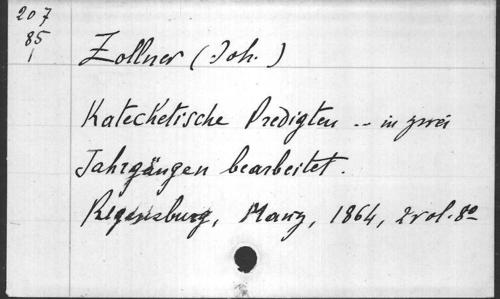 207
85
1
Zollner (Joh.)
Katechetische Predigten -- in zwei
Jahrgängen bearbeitet.
Regensburg, Manz, 1864, 2 vol. 8º